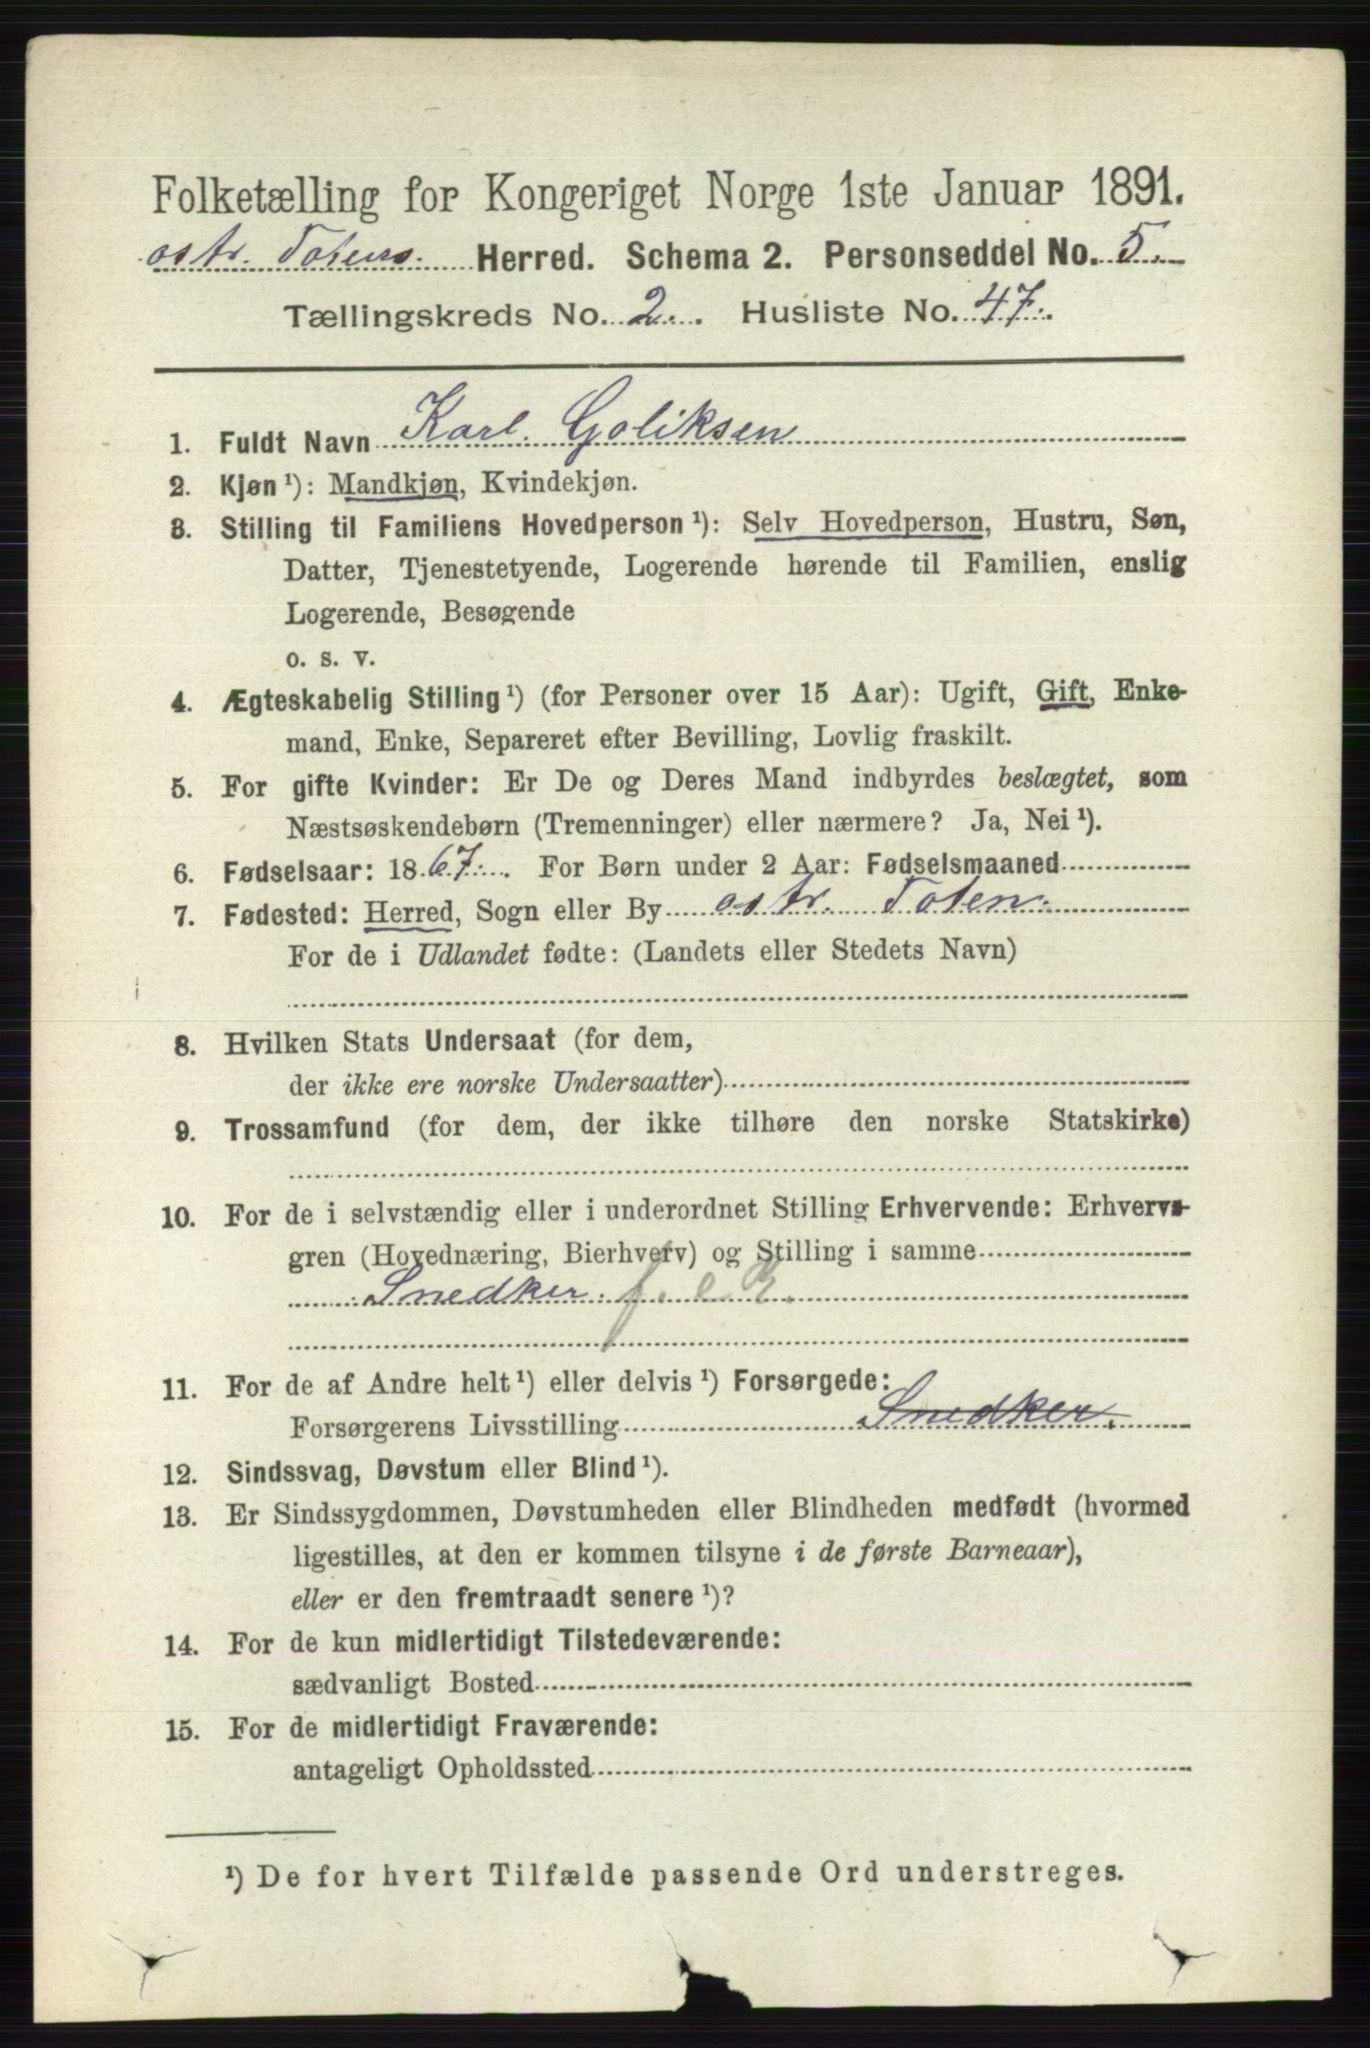 Folketælling for Kongeriget Norge 1ste Januar 1891.
østr. Totens Herred. Schema 2. Personseddel No. 5.
Tællingskreds No. 2. Husliste No. 47.
1. Fuldt Navn Karl Goliksen
2. Kjøn¹): Mandkjøn, Kvindekjøn.
3. Stilling til Familiens Hovedperson¹): Selv Hovedperson, Hustru, Søn,
Datter, Tjenestetyende, Logerende hørende til Familien, enslig
Logerende, Besøgende
o. s. v.
4. Ægteskabelig Stilling¹) (for Personer over 15 Aar): Ugift, Gift, Enke-
mand, Enke, Separeret efter Bevilling, Lovlig fraskilt.
5. For gifte Kvinder: Er De og Deres Mand indbyrdes beslægtet, som
Næstsøskendebørn (Tremenninger) eller nærmere? Ja, Nei¹).
6. Fødselsaar: 1867. For Børn under 2 Aar: Fødselsmaaned
7. Fødested: Herred, Sogn eller By østr. Toten.
For de i Udlandet fødte: (Landets eller Stedets Navn)
8. Hvilken Stats Undersaat (for dem,
der ikke ere norske Undersaatter)
9. Trossamfund (for dem, der ikke tilhøre den norske Statskirke)
10. For de i selvstændig eller i underordnet Stilling Erhvervende: Erhvervs-
gren (Hovednæring, Bierhverv) og Stilling i samme
Snedker. f. e. R.
11. For de af Andre helt¹) eller delvis¹) Forsørgede:
Forsørgerens Livsstilling Snedker.
12. Sindssvag, Døvstum eller Blind¹).
13. Er Sindssygdommen, Døvstumheden eller Blindheden medfødt (hvormed
ligestilles, at den er kommen tilsyne i de første Barneaar),
eller er den fremtraadt senere¹)?
14. For de kun midlertidigt Tilstedeværende:
sædvanligt Bosted
15. For de midlertidigt Fraværende:
antageligt Opholdssted
¹) De for hvert Tilfælde passende Ord understreges.